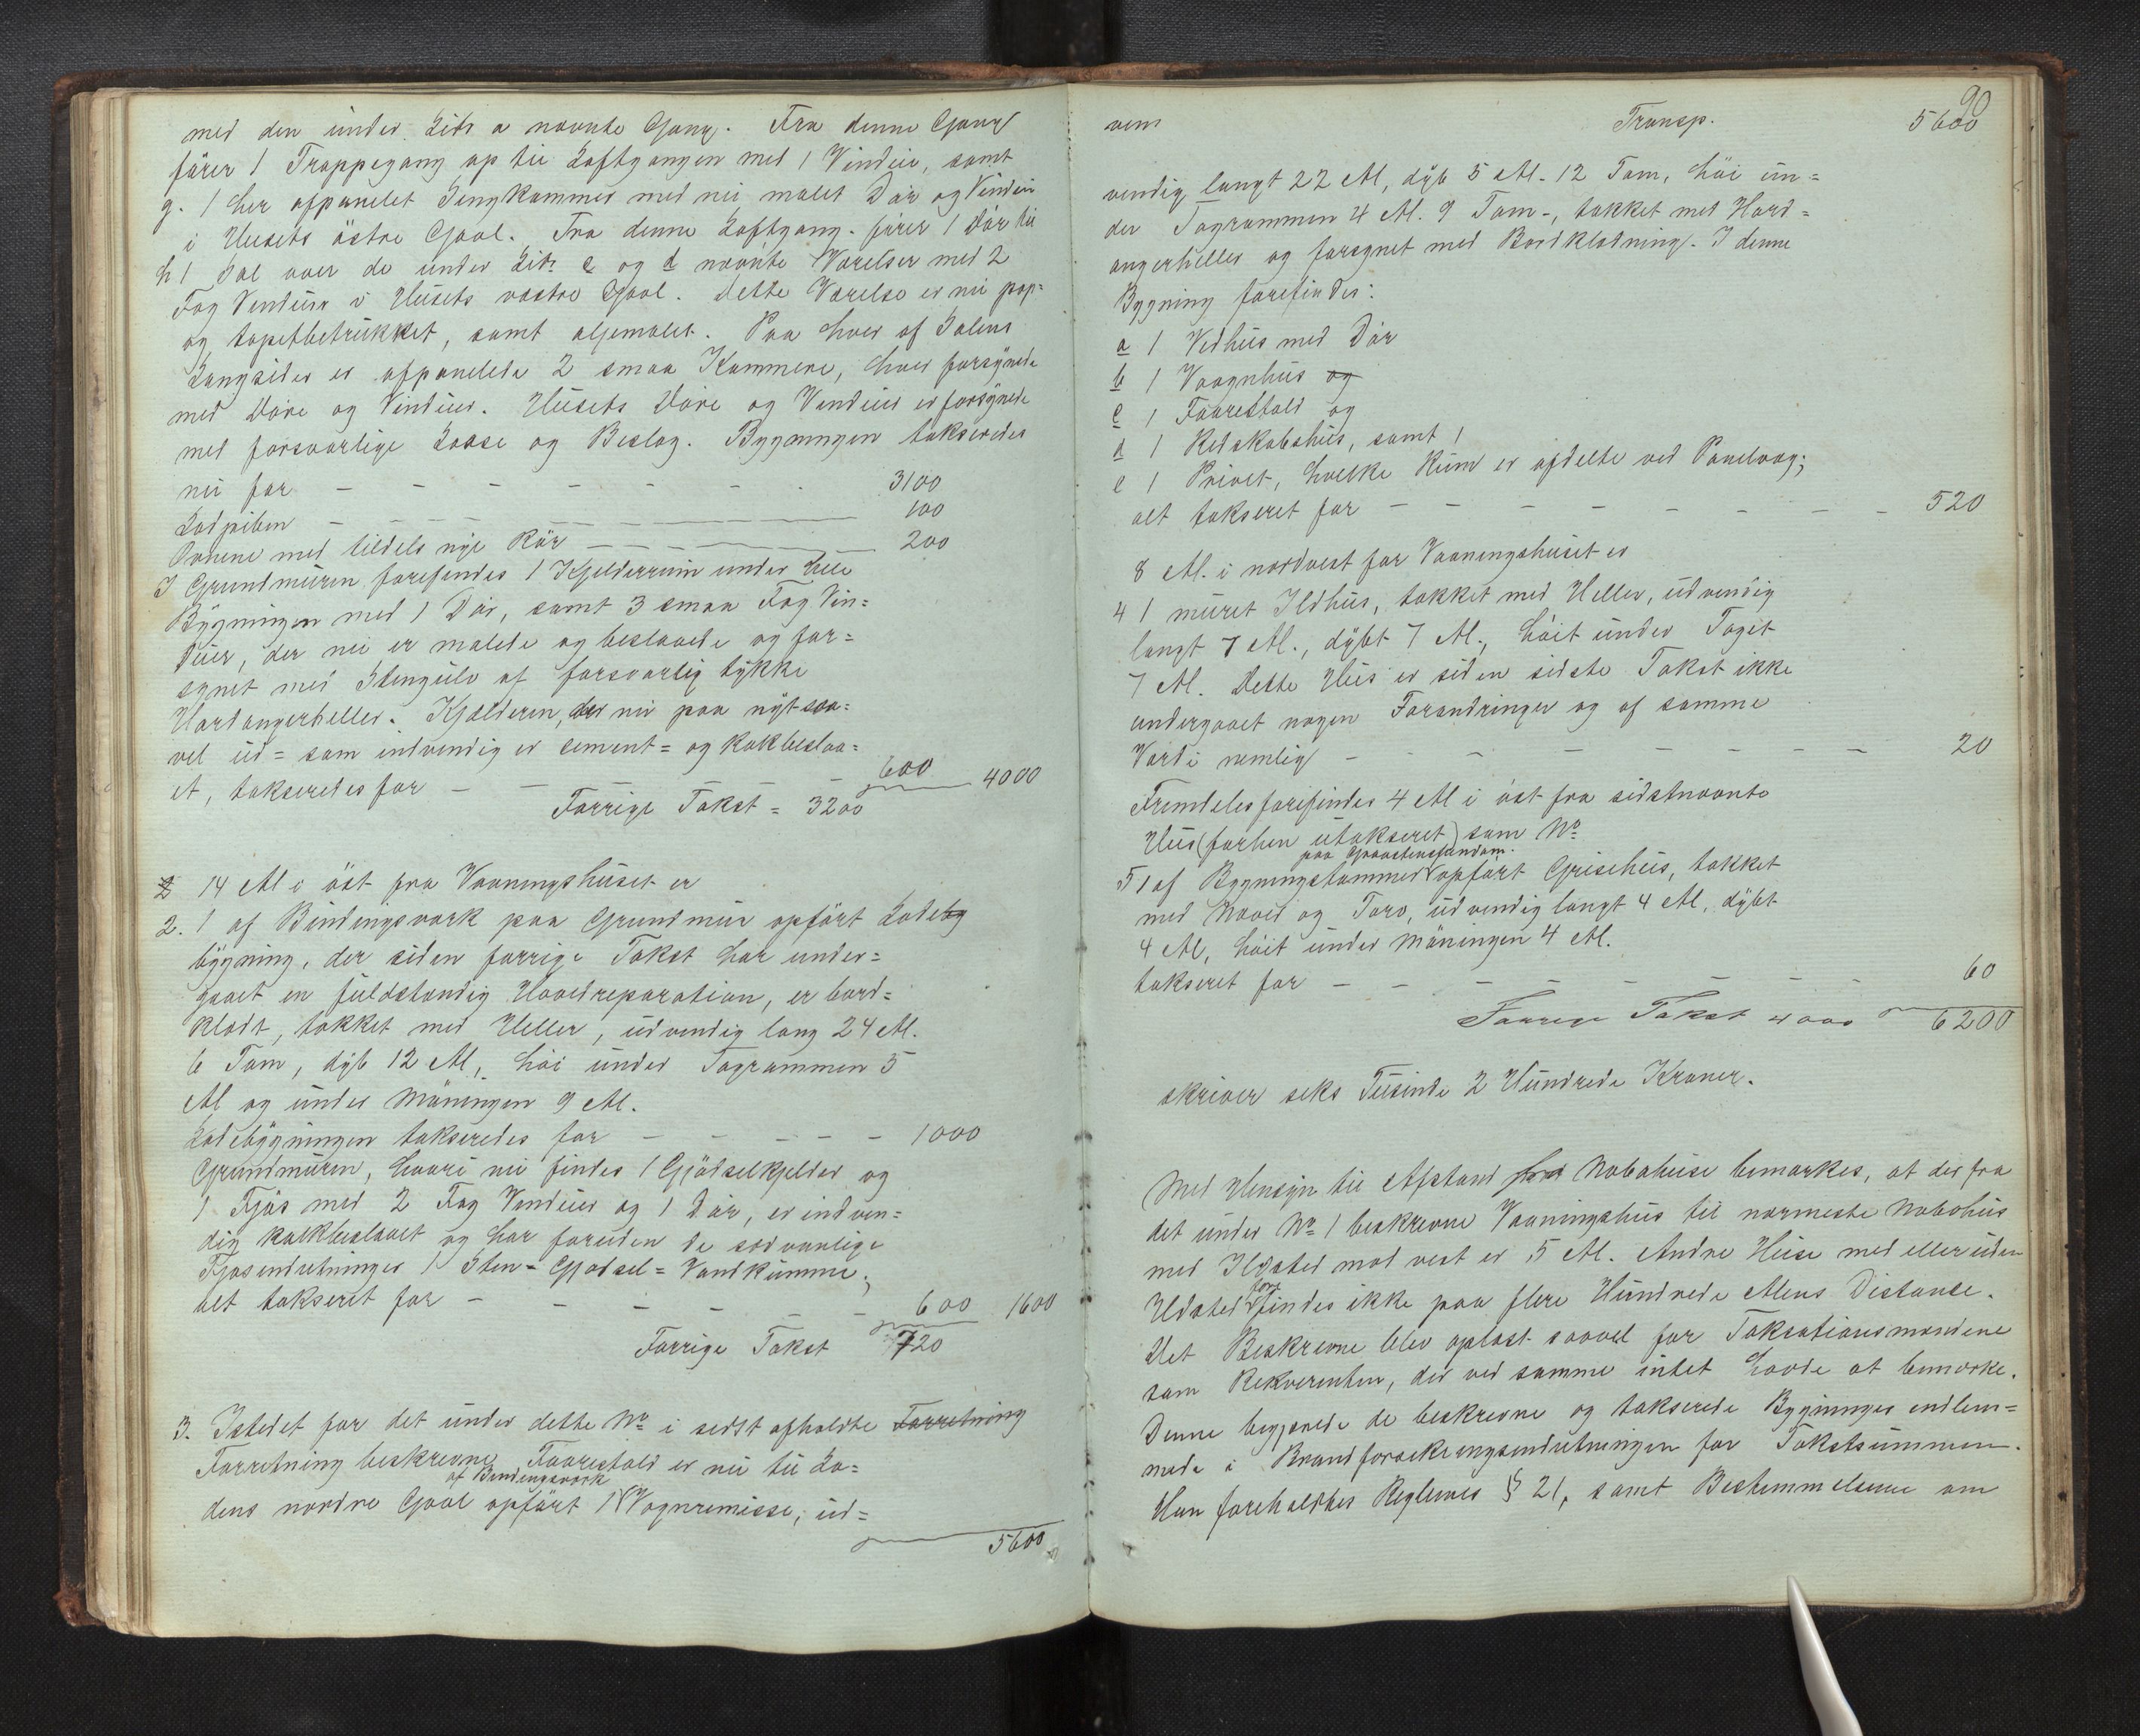 med den under Litr a nævnte Gang. Fra denne Gang
fører 1 Trappegang op til Loftgangen med 1 Vindue, samt
g. 1 her afpanelet Sengkammer med nu malet Dør og Vindue
i Husets östre Gavl. Fra denne Loftgang fører 1 Dør til
h 1 Sal over de under Litr c og d nævnte Værelser med 2
Fag Vinduer i Husets vestre Gavl. Dette Værelse er nu pap=
og tapetbetrukket, samt oljemalet. Paa hver af Salens
Langsider er afpanelede 2 smaa Kammere, hver forsynede
med Døre og Vinduer. Husets Døre og Vinduer er forsynede
med forsvarlige Laase og Beslag. Bygningen takseredes
nu for - - - - - - - - 3100
Lodpiben - - - - 100
Ovnene med tildels nye Rør - - - - 200
I Grundmuren forefindes 1 Kjelderrum under hele
Bygningen med 1 Dør, samt 3 smaa Fag Vin=
duer, der nu er malede og beslaaede og for=
synet med Stengulv af forsvarlig tykke
Hardangerheller. Kjælderen, der nu paa nyt saa=
vel ud= som indvendig er cement= og kalkbeslaa=
et, takseredes for - - - - 600 4000
Forrige Takst = 3200
2 14 Al i öst fra Vaaningshuset er
2. 1 af Bindingsværk paa Grundmur opført Ladeby
bygning, der siden forrige Takst har under=
gaaet en fuldstændig Hovedreparation, er bord=
klædt, tækket med Heller, udvendig lang 24 Al.
6 Tom, dyb 12 Al, høi under Tagrammen 5
Al og under Møningen 9 Al.
Ladebygningen takseredes for - - - - - 1000
Grundmuren, hvori nu findes 1 Gjødselkjelder og
1 Fjøs med 2 Fag Vinduer og 1 Dør, er indven=
dig kalkbeslaaet og har foruden de sædvanlige
Fjøsindretninger 1 Sten= Gjødsel= Vandkumme,
alt takseret for - - - - - - 600 1600
Forrige Takst 720
3. Istedet for det under dette No i sidst afholdte Forretning
Forretning beskrevne Faarestald er nu til La=
af Bindingsværk
dens nordre Gavl opført 1 Vognremisse, ud=
5600
90
ven Transp. 5600
vendig langt 22 Al, dyb 5 Al. 12 Tom, høi un=
der Tagrammen 4 Al. 9 Tom-, tækket med Hard=
angerheller og forsynet med Bordklædning. I denne
Bygning forefindes:
a 1 Vedhus med Dør
b 1 Vaagnhus og
c 1 Faarestald og
d 1 Redskabshus, samt 1
e 1 Privet, hvilke Rum er afdelte ved Panelvæg;
alt takseret for - - - - - - - - 520
8 Al. i nordvest for Vaaningshuset er
4 1 muret Ildhus, tækket med Heller, udvendig
langt 7 Al., dybt 7 Al., høit under Taget
7 Al. Dette Hus er siden sidste Takst ikke
undergaaet nogen Forandringer og af samme
Værdi nemlig - - - - - - - 20
Fremdeles forefindes 4 Al i öst fra sidstnævnte
Hus (forhen utakseret) som No
paa Graastensfundam.
5 1 af Bygningstømmer opført Grisehus, tækket
med Næver og Torv, udvendig langt 4 Al, dybt
4 Al, høit under Møningen 4 Al.
takseret for - - - - - - - 60
Forrige Takst 4000 6200
skriver seks Tusinde 2 Hundrede Kroner.
Med Hensyn til Afstand fra Nabohuse bemærkes, at der fra
det under No 1 beskrevne Vaaningshus til nærmeste Nabohus
med Ildsted mod vest er 5 Al. Andre Huse med eller uden
fore
Ildsted findes ikke paa flere Hundrede Alens Distance.
Det Beskrevne blev oplæst saavel for Taksationsmændene
som Rekvirenten, der ved samme intet havde at bemærke.
Denne begjærede de beskrevne og takserede Bygninger indlem=
mede i Brandforsikringsindretningen for Takstsummen.
Han foreholdtes Reglernes § 21, samt Bestemmelserne om